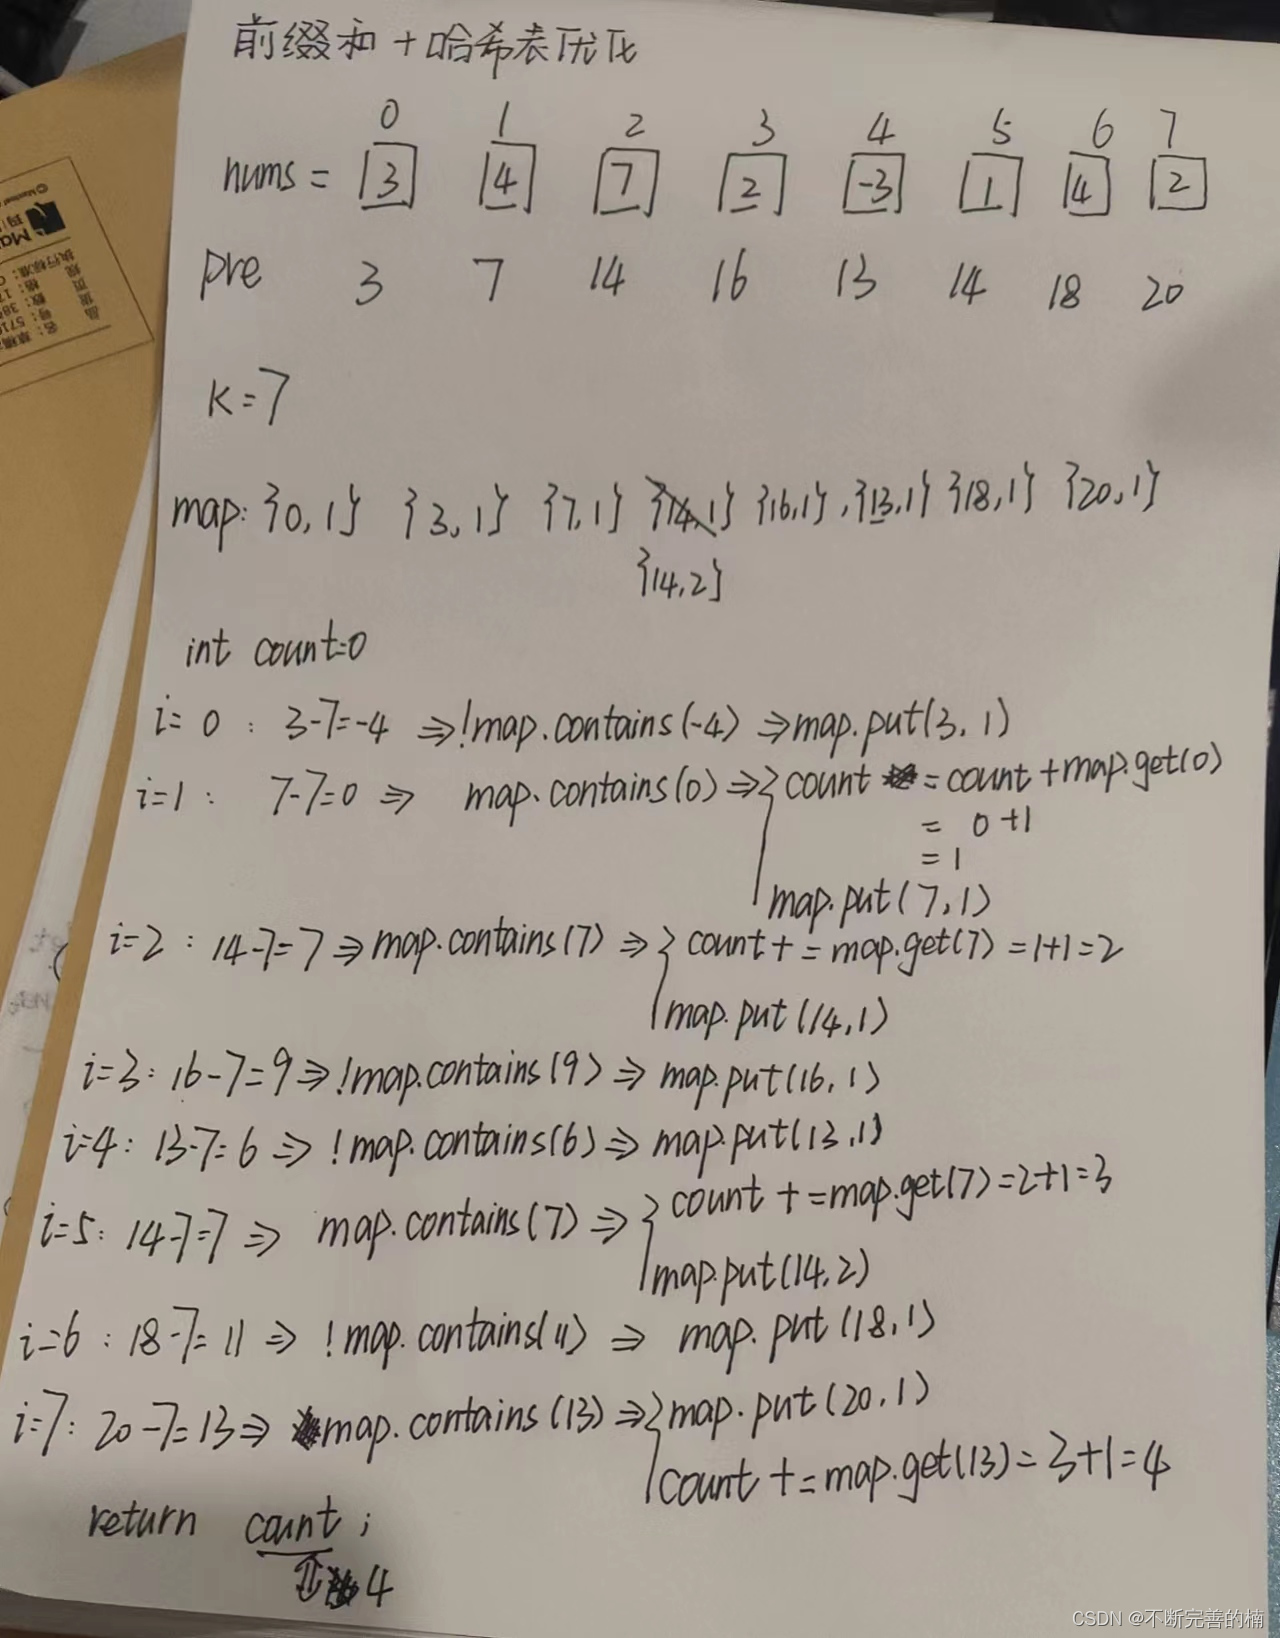 前缀和 + 哈希表优化
0 1 2 3 4 5 6 7
nums = 3 4 7 2 -3 1 4 2
pre 3 7 14 16 13 14 18 20
K=7
map: {0,1} {3,1} {7,1} {14,1} {16,1},{13,1} {18,1} {20,1}
{14,2}
int count=0
i=0: 3-7=-4 ⇒ !map.contains(-4) ⇒ map.put(3,1)
i=1: 7-7=0 ⇒ map.contains(0) ⇒ { count = count+map.get(0)
= 0+1
=1
map.put(7,1)
i=2: 14-7=7 ⇒ map.contains(7) ⇒ { count += map.get(7)=1+1=2
map.put(14,1)
i=3: 16-7=9 ⇒ !map.contains(9) ⇒ map.put(16,1)
i=4: 13-7=6 ⇒ !map.contains(6) ⇒ map.put(13,1)
i=5: 14-7=7 ⇒ map.contains(7) ⇒ { count +=map.get(7)=2+1=3
map.put(14,2)
i=6: 18-7=11 ⇒ !map.contains(11) ⇒ map.put(18,1)
i=7: 20-7=13 ⇒ map.contains(13) ⇒ { map.put(20,1)
count += map.get(13)=3+1=4
return count;
⇕ 4
CSDN @不断完善的楠